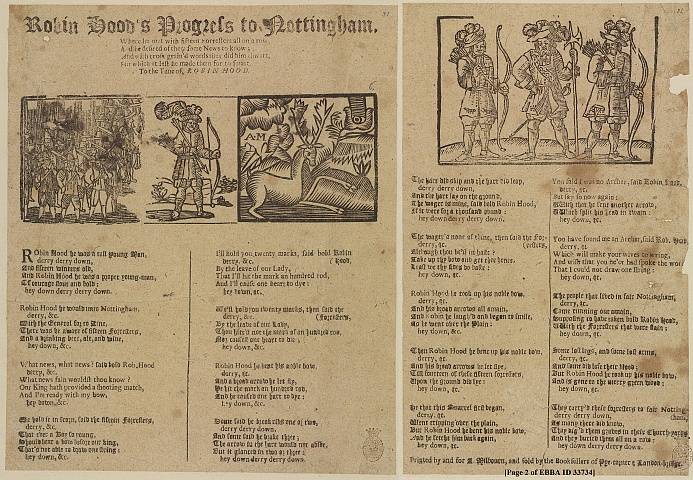 Robin Hood's Progress to Nottingham.
Where he met with fifteen Forresters all on a row,
And he desired of them some News to know;
And with cross grain'd words they did him thwart,
For which at last he made them for to smart.
To the Tune of, ROBIN HOOD.
A·M
RObin Hood he was a tall young Man,
derry derry down,
And fifteen winters old,
And Robin Hood he was a proper young-man,
Of courage stout and bold:
hey down derry derry down.
Robin Hood he would unto Nottingham,
derry, &c.
With the General for to Dine,
There was he aware of fifteen Forresters,
And a drinking beer, ale, and wine,
hey down, &c.
What news, what news? said bold Rob. Hood
derry, &c.
What news fain wouldst thou know?
Our King hath provided a shooting match,
And I'm ready with my bow,
hey down, &c.
We hold it in scorn, said the fifteen Forresters,
derry, derry down,
That ever a Boy so young,
Should bear a bow before our King,
That's not able to draw one string:
hey down, &c.
I'll hold you twenty marks, said bold Robin
derry, &c. (Hood,
By the leave of our Lady,
That I'll hit the mark an hundred rod,
And I'll cause one heart to dye:
hey down, &c.
We'll hold you twenty marks, then said the
derry, &c. (Forresters,
By the leave of our Lady,
Thou hit'st not the mark of an hundred rod,
Nor causest one heart to die:
hey down, &c.
Robin Hood he bent his noble bow,
derry, &c.
And a broad arrow he let fly,
He hit the mark an hundred rod,
And he caused one hart to dye:
hey down, &c.
Some said he brake ribs one or two,
derry derry down,
And some said he brake three;
The arrow in the hart would not abide,
But it glanced in two or three:
hey down derry derry down.
The hart did skip and the hart did leap,
derry derry down,
And the hart lay on the ground,
The wager is mine, said bold Robin Hood,
If it were for a thousand pound:
hey down derry derry down.
The wager's none of thine, then said the For-
derry, &c. (resters,
Although thou be'st in haste:
Take up thy bow and get thee hence,
Lest we thy sides do baste:
hey down, &c.
Robin Hood he took up his noble bow,
derry, &c.
And his broad arrows all amain,
And Robin he laught and then began to smile,
As he went over the Plain:
hey down, &c.
Then Robin Hood he bent up his noble bow,
derry, &c.
And his broad arrows he let flye,
Till fourteen of these fifteen forresters,
Upon the ground did lye:
hey down, &c.
He that this quarrel first began,
derry, &c.
Went tripping over the plain,
But Robin Hood he bent his noble bow,
And he fetcht him back again,
hey down, &c.
You said I was no Archer, said Robin Hood,
derry, &c.
But say so now again:
With that he sent another arrow,
Which split his head in twain:
hey down, &c.
You have found me an Archer, said Rob. Hood,
derry, &c.
Which will make your wives to wring,
And wish that you ne'er had spoke the word
That I could not draw one string:
hey down, &c.
The people that lived in fair Nottingham,
derry, &c.
Came running out amain,
Supposing to have taken bold Robin Hood,
With the Forresters that were slain:
hey down, &c.
Some lost legs, and some lost arms,
derry, &c.
And some did lose their blood:
But Robin Hood he took up his noble bow,
And is gone to the merry green wood:
hey down, &c.
They carry'd these forresters to fair Notting-
derry, derry down, (ham,
As many there did know,
They dig'd them graves in their Church-yard,
And they buried them all on a row:
hey down derry derry down.
Printed by and for A. Milbourn, and sold by the Booksellers of Pye-corner & London-bridge.
[Page 2 of EBBA ID 33734]